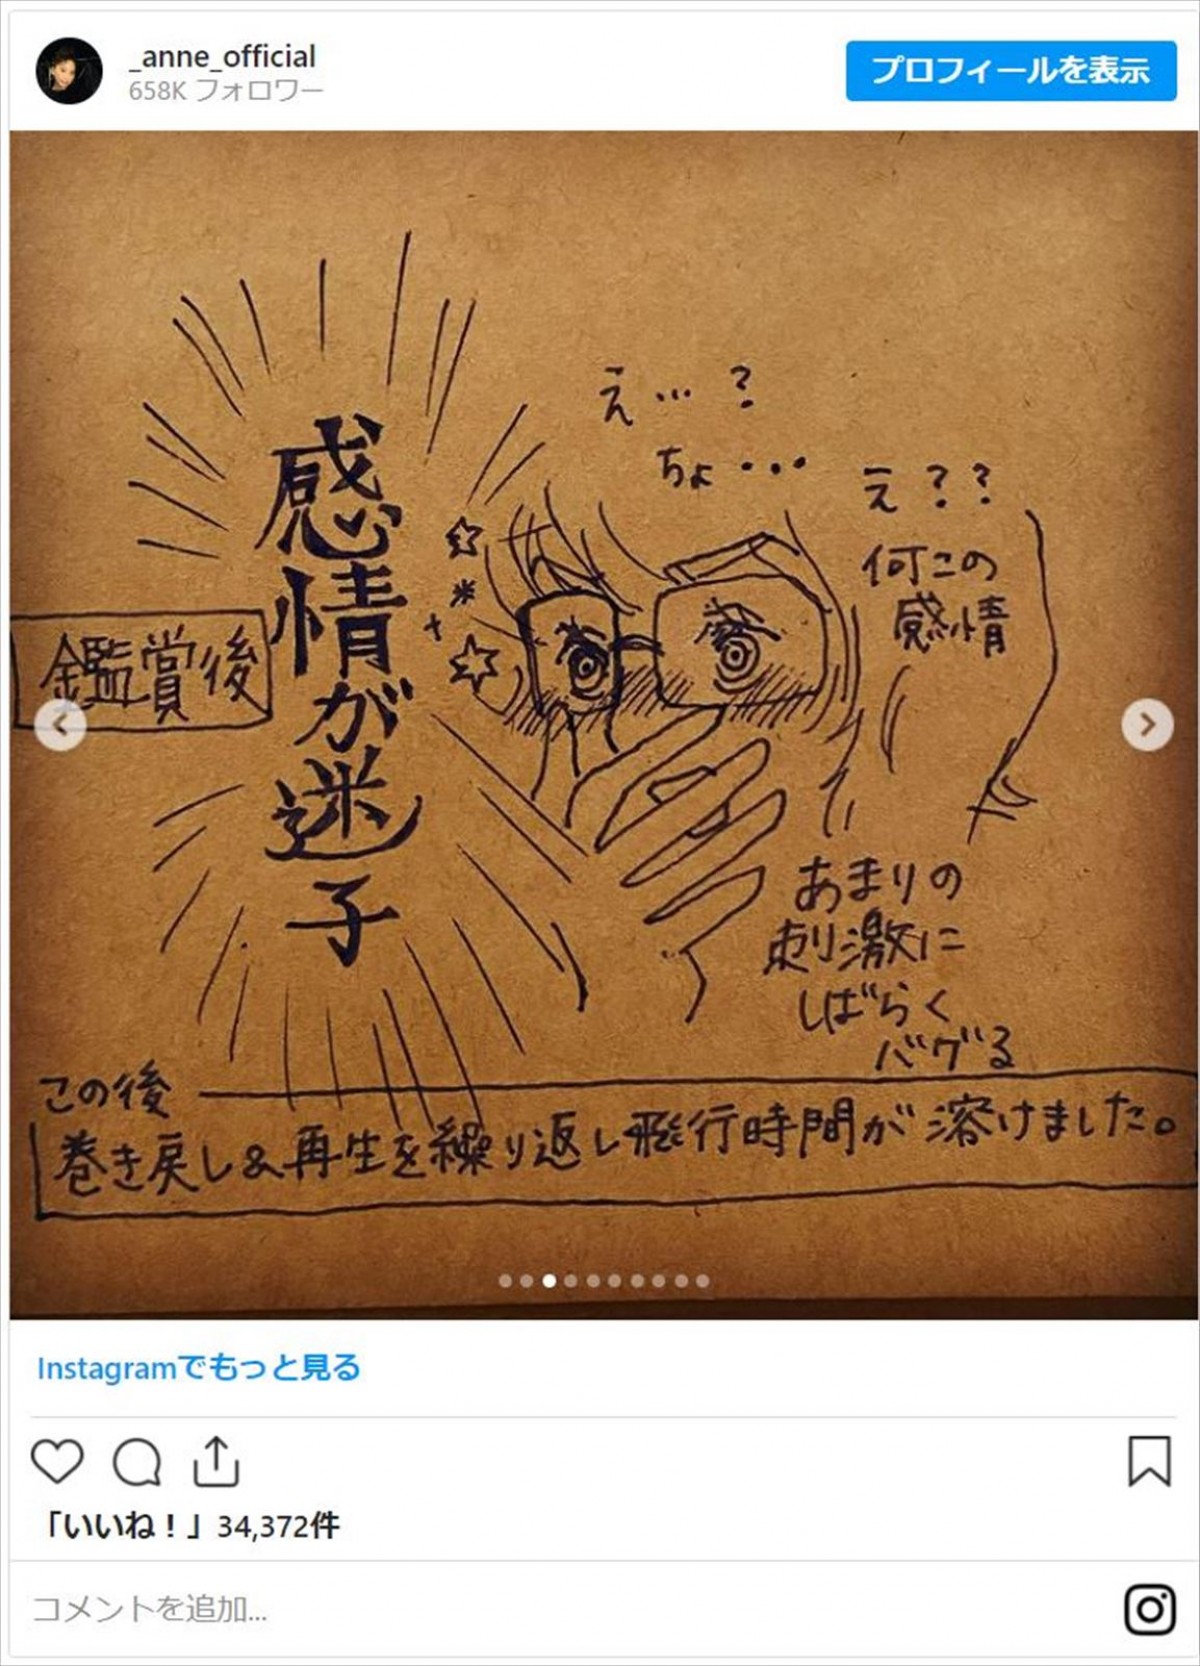 _anne_official
658K フォロワー
プロフィールを表示
え…?
ちょ…
え??
何この
感情
感情が迷子
鑑賞後
あまりの
刺激に
しばらく
バグる
この後
巻き戻し&再生を繰り返し飛行時間が溶けました。
Instagramでもっと見る
「いいね！」34,372件
コメントを追加...